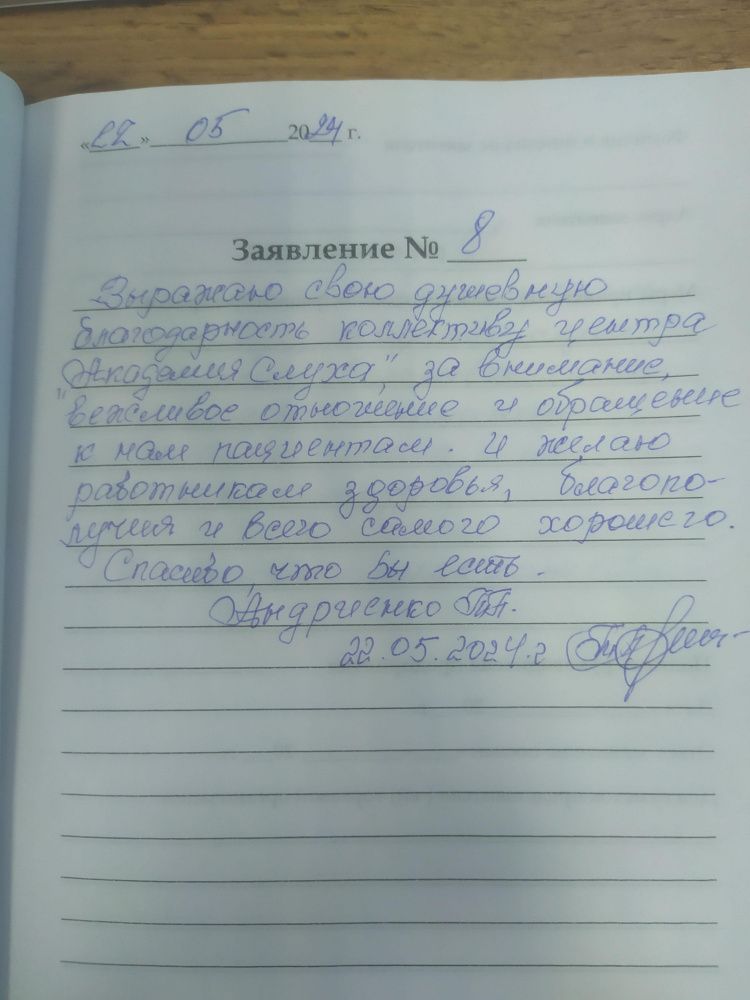 «22» 05 2024 г.
Заявление № 8
Выражаю свою душевную
благодарность коллективу центра
"Академия Слуха" за внимание,
вежливое отношение и обращение
к нам пациентам. И желаю
работникам здоровья, благопо-
лучия и всего самого хорошего.
Спасибо, что вы есть.
Андриенко Т.П.
22.05.2024.г